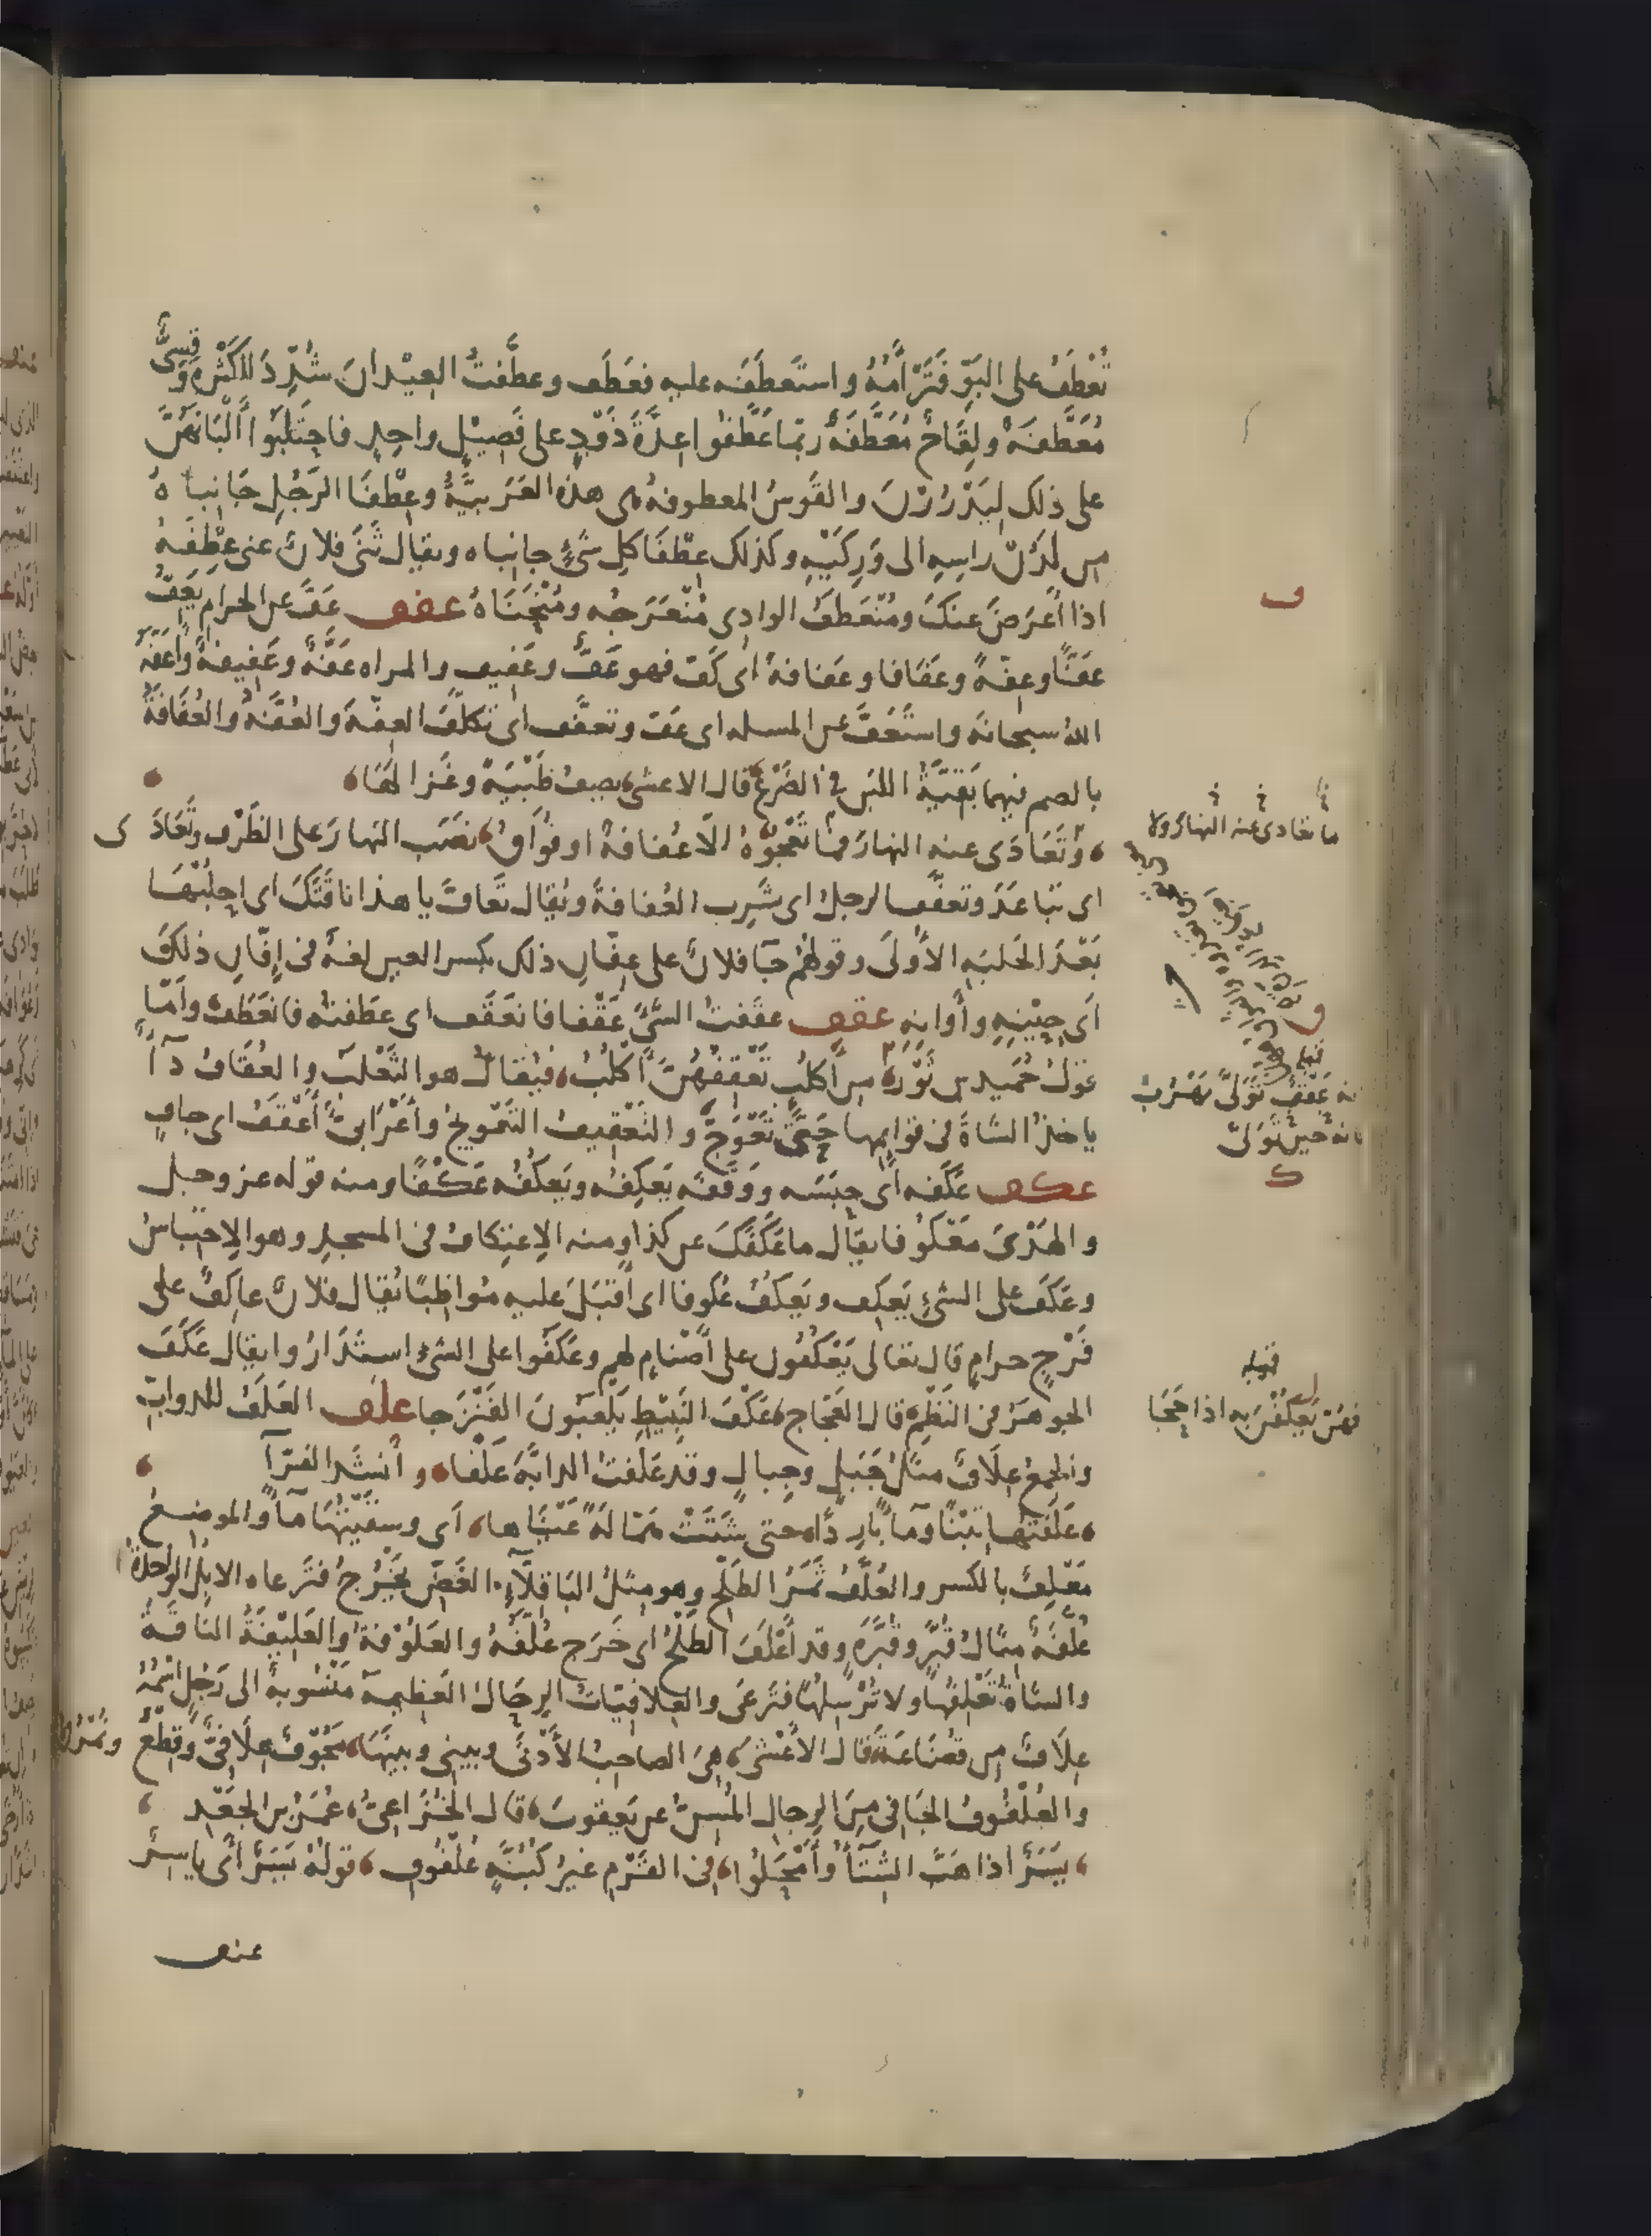 تَعْطَفُ على البَوِّ فَتَرْأَمُهُ واستعطَفَه عليه فعَطَف وعطَّفتُ العِيْدانَ شُدِّدَ للكَثْرةِ وقِسِىٌّ
مُعَطَّفَةٌ ولِقَاحٌ مُعَطَّفَةٌ ربّما عَطَّفُوا عِدَّةَ ذَوْدٍ على فَصِيْلٍ واحِدٍ فاحتَلَبُوا أَلْبَانَهُنَّ
على ذلك لِيَدْرُرْنَ والقَوسُ المعطوفةُ هى هذه العَرَبيَّةُ وعِطْفَا الرَجُلِ جَانِباهُ
من لَدُنْ راسِهِ الى وَرِكَيْهِ وكذلك عِطْفَا كلِ شَىْءٍ جانباه ويقال ثَنَى فلانٌ عنى عِطْفَهُ
اذا أَعرَضَ عنكَ ومُنْعَطَفُ الوادِى مُنْعَرَجُه ومُنْحَنَاهُ عفف عَفَّ عن الحرام يَعِفُّ
عَفًّا وعِفّةً وعَفَافا وعَفافةً اى كَفّ فهو عَفٌّ وعَفِيف والمراه عَفَّةٌ وعَفِيفةٌ وأَعَفَّهُ
اللهُ سبحانه واستَعَفَّ عن المسله اى عَفّ وتعفَّف اى تكلَّفَ العِفّةَ والعُفَّةُ والعُفَافَةُ
بالضم فيهما بَقِيَّةُ اللبَنِ فى الضَرْعِ قال الاعشى يصِفُ ظَبْيَةً وغَزالَهَا
وتَعَادَى عنه النهارَ فما تَعْجُوْهُ الّا عُفافةٌ او فُوَاقُ نصَب النهارَ على الظَرْف وتَعَادَى
اى تباعَدُ وتعفَّف الرجلُ اى شَرِب العُفافةَ ويُقال تَعافَّ يا هذا ناقَتَكَ اى احلُبْهَا
بَعْدَ الحَلبَهِ الأُولَى وقولهُم جآ فلانٌ على عِفّانِ ذلك بكسر العين لغةٌ فى إِفّانِ ذلكَ
اى حِيْنِهِ وأوانِهِ عقف عقَفتُ الشَىْءَ عَقْفا فانعَقَف اى عطَفتُه فانعَطَف وأمّا
قول حُمَيد بن ثَوْر من أكلبٍ تَعْقِفُهُنَّ أَكْلُبُ فيُقالُ هو الثَعْلَبُ والعُقَافُ دآءٌ
ياخذُ الشاةَ فى قوايمها حتَّى تَعْوَجَّ والتَعْقِيفُ التَعْوِيجُ وأَعْرَابىٌّ أَعْقَفُ اى جافٍ
عكف عَكَفه اى حبَسَه ووَقَفَه يَعكِفُه ويَعكُفُه عَكْفًا ومنه قوله عز وجل
والهَدْىَ مَعْكُوفا يقال ما عَكَفَكَ عن كذا ومنه الاِعتِكافُ فى المسجدِ وهو الاحتِباسُ
وعَكَفَ على الشىْءِ يَعكِف ويَعكُفُ عُكوفا اى أقبَلَ عليه مُواظِبًا يُقال فلانٌ عاكِفٌ على
فَرْجٍ حرامٍ قال تعالى يَعْكُفُون على أَصْنامٍ لهم وعَكَفُوا على الشىْءِ استَدَارُوا يقال عَكَفَ
الجوهَرُ فى النَظْمِ قال العَجّاج عَكْفَ النَبِيْطِ يَلْعبُونَ الفَنْزَجا علف العَلَفُ للدوابّ
والجمعُ عِلَافٌ مثلُ جَبَلٍ وجِبالٍ وقد عَلَفتُ الدابَّةَ عَلْفا وأنشَد الفرّآ
عَلَفتُها تِبْنًا ومآءً بارِدًا حتى شَتَتْ هَمّالَةً عَيْنَاها اى وسقَيْتُهَا مآءً والموضِعُ
مَعْلِفٌ بالكسر والعُلَّفُ ثَمَرُ الطَلْحِ وهو مِثلُ البَاقِلَّآءِ الغَضِّ يَخْرُجُ فتَرعاه الابِلُ الواحدةُ
عُلَّفَةٌ مثالُ قُبَّرٍ وقُبَّرَةٍ وقد أَعْلَفَ الطَلْحُ اى خَرَج عُلَّفَهُ والعَلُوْفةُ والعَلِيْفَةُ الناقةُ
والشاةُ تَعْلِفُهَا ولا تُرْسِلُهَا فتَرعَى والعِلافِيّاتُ الرِحَالُ العَظِيمه مَنْسُوبةٌ الى رَجُلٍ اسْمُهُ
عِلَافٌ من قُضَاعَةَ قال الأَعْشَى هِىَ الصاحِبُ الأَدْنَى وبينى وبينَها مَجُوْفٌ عِلَافِىٌّ وقِطْعٌ ونُمْرُق
والعُلْفُوفُ الجَافى مِنَ الرجال المُسِنُّ عن يَعقوبَ قال الخُزَاعِىُّ عُمَيْرُ بن الجَعْدِ
يَسَرٌ اذا هَبَّ الشِتَآءُ وأَمْحَلُوا فى القَوْمِ غيرُ كُبُنَّةٍ عُلْفُوفِ قولُهُ يَسَرٌ أى ياسِرٌ
عنف
ف
ما تعادى عنه النهار ولا
قبله
انه عَقْفٌ تَوَلَّى يَهْرُبُ
حِينَ تَوَلَّى
ك
قبله
فهُنّ يَعكُفْنَ به اذا حَجَا